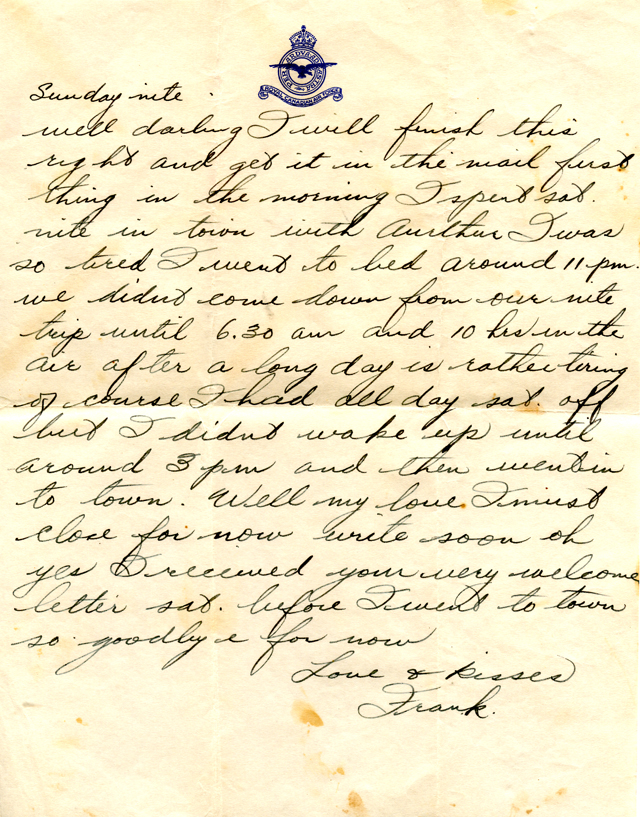 PER ARDUA AD ASTRA
ROYAL CANADIAN AIR FORCE
Sunday nite
well darling I will finish this
right and get it in the mail first
thing in the morning I spent sat.
nite in town with Aurthur I was
so tired I went to bed around 11 pm.
we didnt come down from our nite
trip until 6.30 am and 10 hrs in the
air after a long day is rather tiring
of course I had all day sat. off
but I didnt wake up until
around 3 pm and then went in
to town. Well my love I must
close for now write soon oh
yes I received your very welcome
letter sat. before I went to town
so goodbye for now
Love & kisses
Frank.